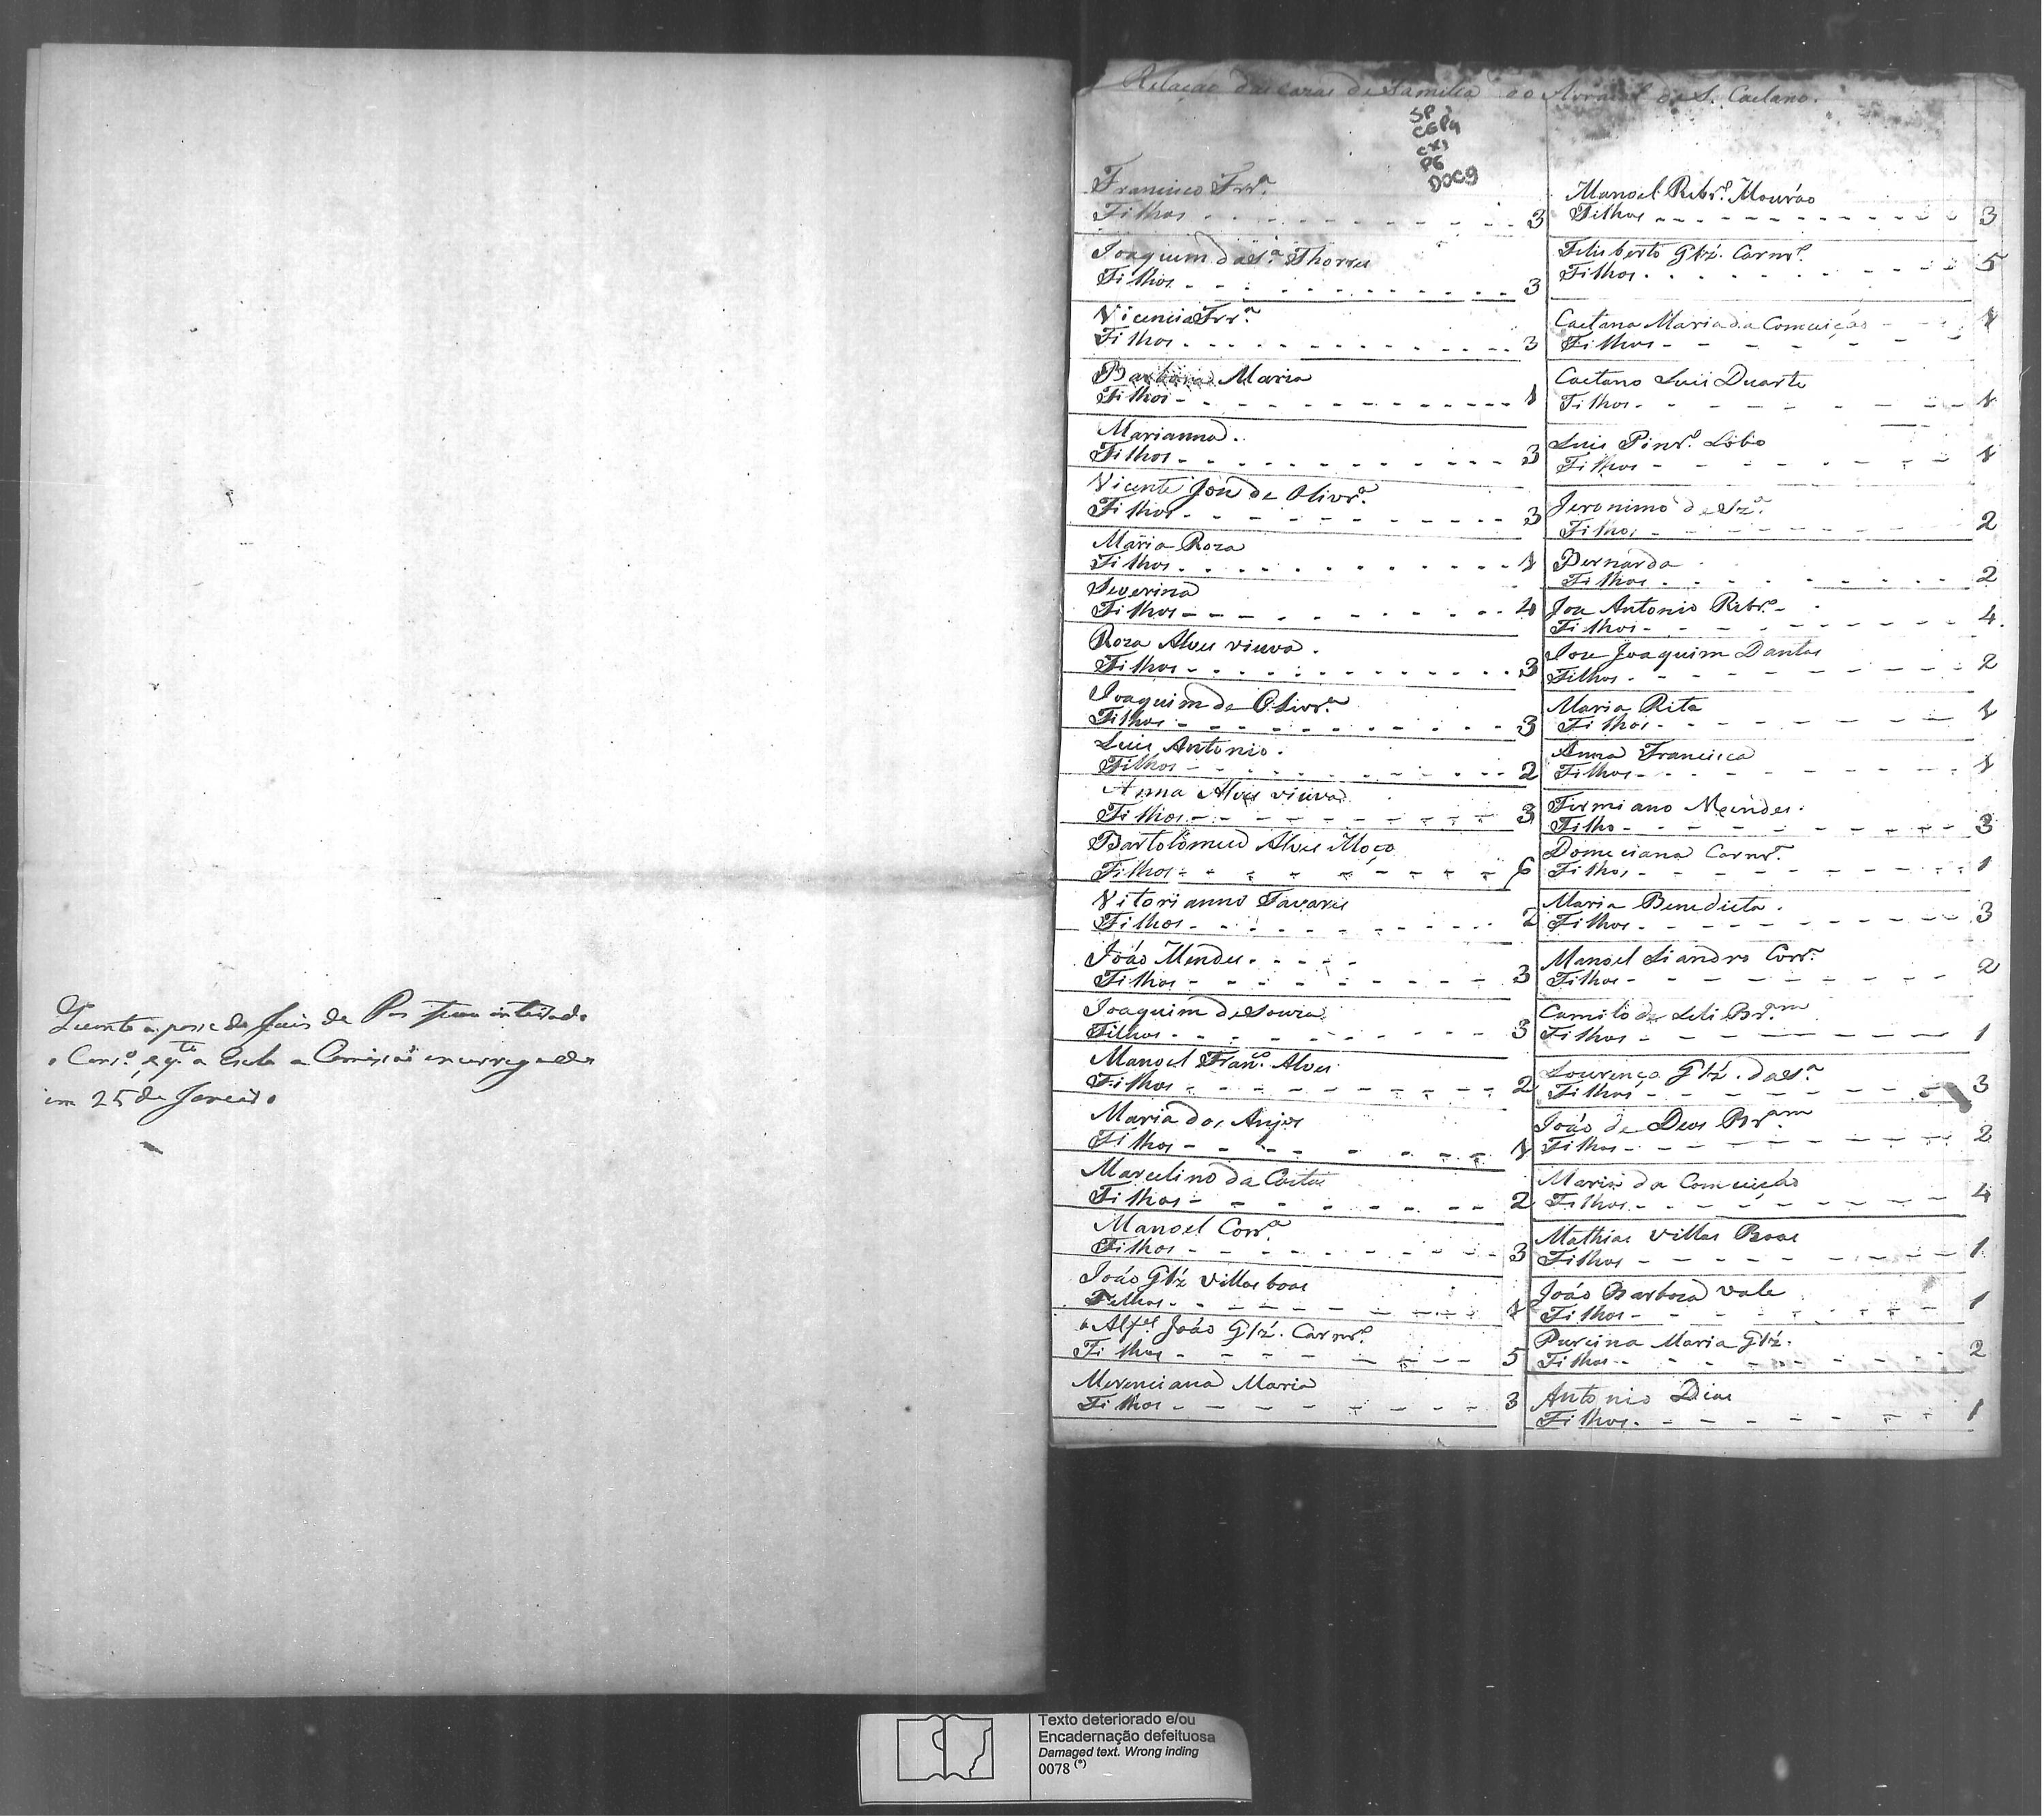 Quanto a posse do Juis de Pas ficou inteirado
o Cons.º, e q.to a Escola a Comissaõ encarregada
em 25 de Janeiro
Relação das cazas de Familia do Arraial de S. Caetano.
SP
CGP4
CX1
P6
DOC9
Francisco Frr.ª
Filhos 3
Joaquim da S.ª Thorres
Filhos 3
Vicencia Frr.ª
Filhos 3
Barbara Maria
Filhos 1
Marianna.
Filhos 3
Vicente José de Olivr.ª
Filhos 3
Maria Roza
Filhos 1
Severina
Filhos 4
Roza Alves viuva.
Filhos 3
Joaquim de Olivr.ª
Filhos 3
Luis Antonio.
Filhos 2
Anna Alves viuva
Filhos 3
Bartolomeu Alves Moço
Filhos 6
Vitorianno Tavares
Filhos 2
João Mendes
Filhos 3
Joaquim de Souza
Filhos 3
Manoel Fran.co Alves
Filhos 2
Maria dos Anjos
Filhos 1
Marcelino da Costa
Filhos 2
Manoel Corr.ª
Filhos 3
João Glz Villas boas
Filhos 1
o Alf.es João Glz. Carnr.º
Filhos 5
Merenciana Maria
Filhos 3
Manoel Ribr.º Mourão
Filhos 3
Feliberto Glz. Carnr.º
Filhos 5
Caetana Maria da Comceição 1
Filhos
Caetano Luis Duarte
Filhos 1
Luis Pinr.º Lobo
Filhos 1
Jeronimo de Sz.ª
Filhos 2
Bernarda
Filhos 2
Joze Antonio Ribr.º
Filhos 4
Joze Joaquim Dantas
Filhos 2
Maria Rita
Filhos 1
Anna Francisca
Filhos 1
Firmiano Mendes.
Filho 3
Domiciana Carnr.ª
Filhos 1
Maria Benedicta.
Filhos 3
Manoel Liandro Corr.ª
Filhos 2
Camilo de Leli Br.am
Filhos 1
Lourenço Glz. da S.ª
Filhos 3
João de Deos Br.am
Filhos 2
Maria da Comceição
Filhos 4
Mathias Villas Boas
Filhos 1
João Barboza Vale
Filhos 1
Purcina Maria Glz.
Filhos 2
Antonio Dias
Filhos 1
Texto deteriorado e/ou
Encadernação defeituosa
Damaged text. Wrong inding
0078 (*)